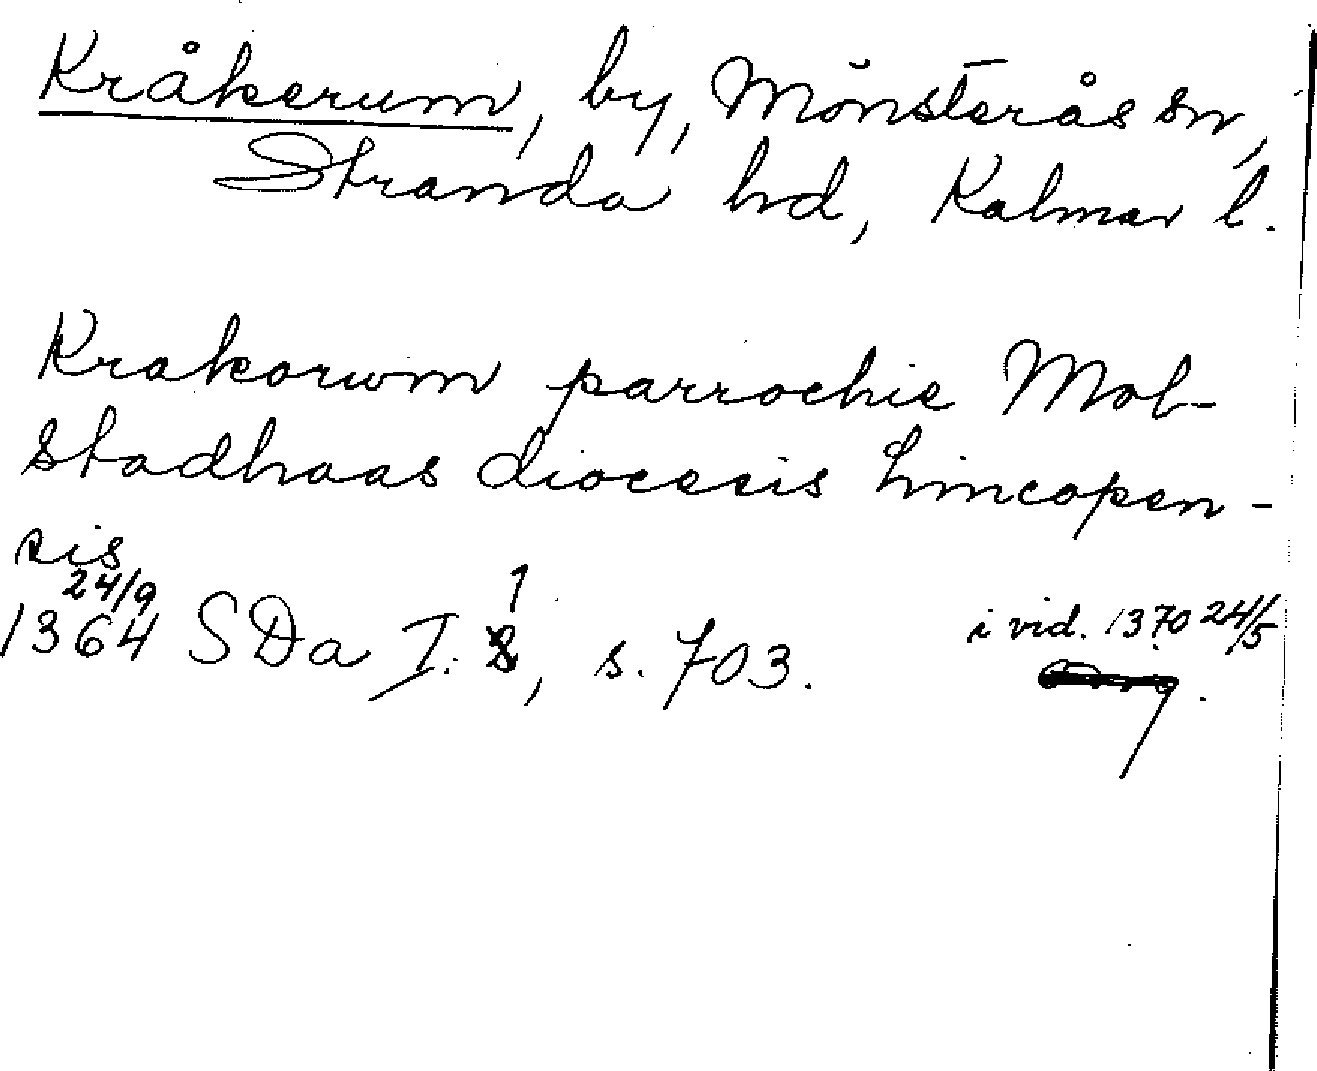 Kråkerum, by, Mönsterås sn,
Stranda hd, Kalmar l.
Krakorwm parrochie Mol-
stadhaas diocesis Lincopen-
sis
24/9
1364 SDa I. 1, s. 703.
i vid. 1370 24/5